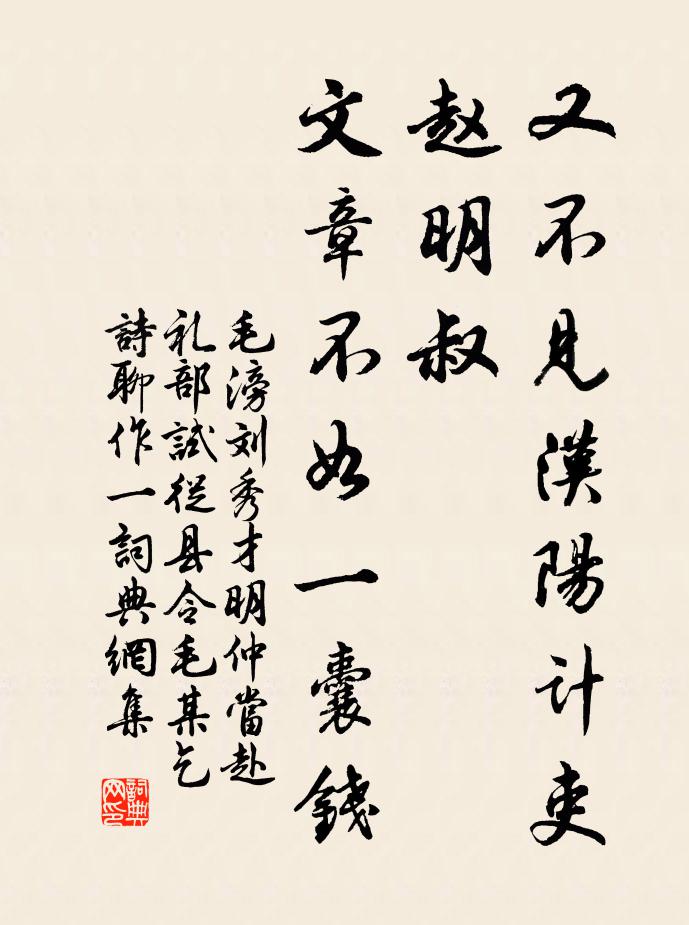 又不見漢陽计吏
赵明叔
文章不如一囊錢
毛滂刘秀才明仲當赴
礼部試從县令毛某乞
詩聊作一詞典網集
詞典网印